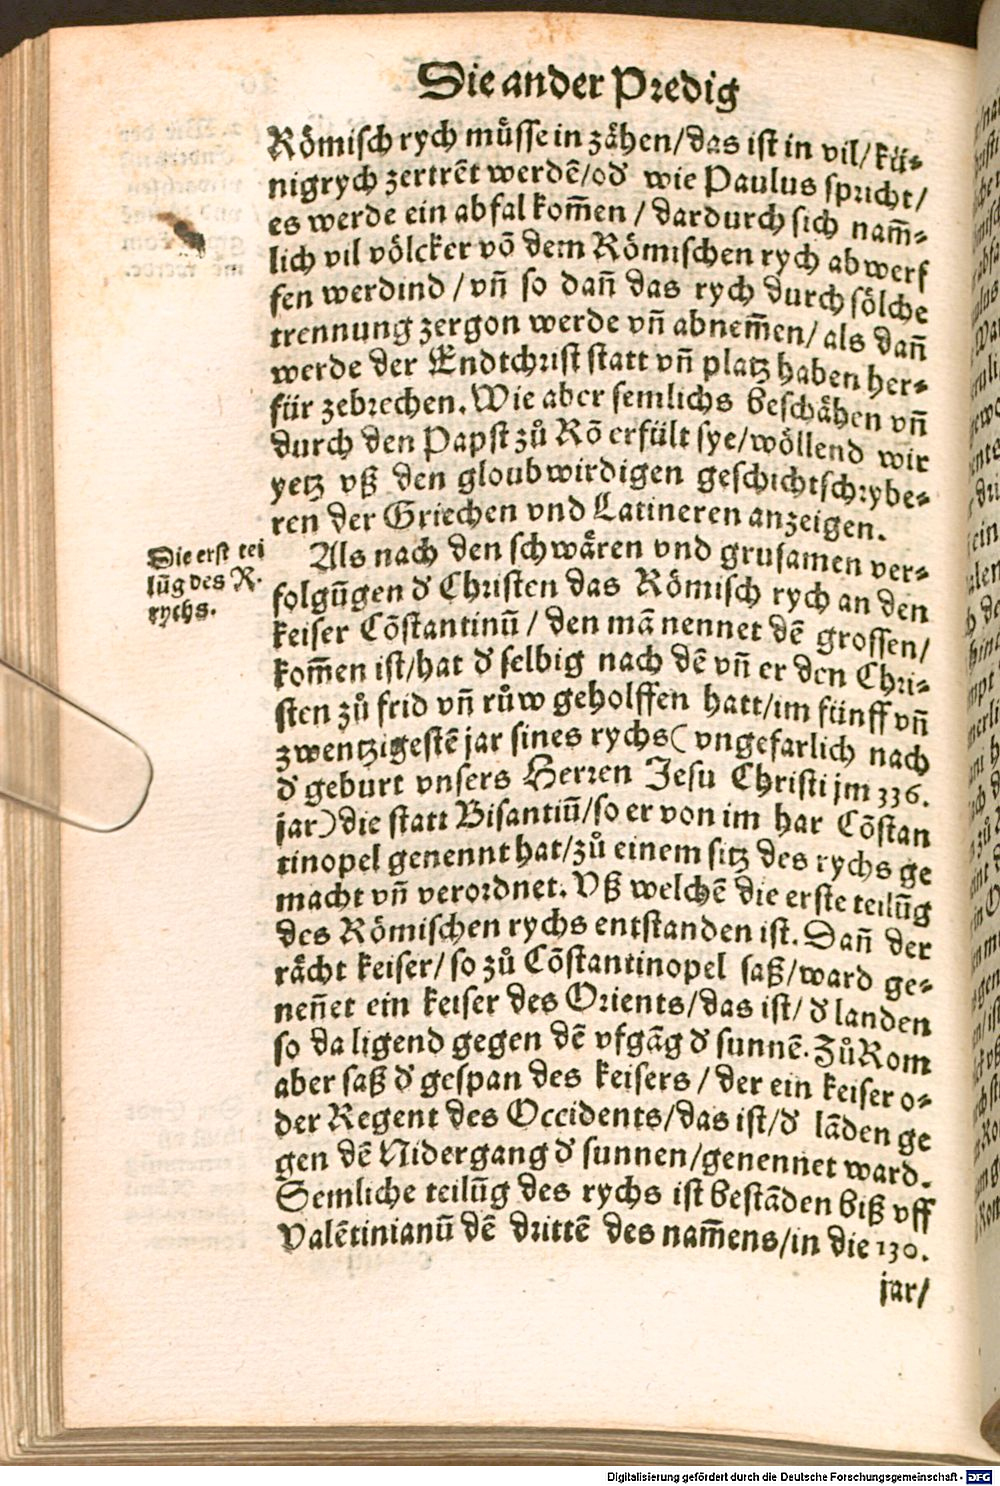 Die ander Predig
Römisch rych müsse in zähen/das ist in vil/kü⸗
nigrych zertrēt werdē/od̕ wie Paulus spricht/
es werde ein abfal kom̄en/dardurch sich nam̄⸗
lich vil völcker vō dem Römischen rych abwerf
fen werdind/vn̄ so dan̄ das rych durch sölche
trennung zergon werde vn̄ abnem̄en/als dan̄
werde der Endtchrist statt vn̄ platz haben her⸗
für zebrechen. Wie aber semlichs beschähen vn̄
durch den Papst zů Rō erfült sye/wöllend wir
yetz vß den gloubwirdigen geschichtschrybe⸗
ren der Griechen vnd Latineren anzeigen.
Die erst tei
lūg des R.
rychs.
Als nach den schwären vnd grusamen ver⸗
folgūgen d̕ Christen das Römisch rych an den
keiser Cōstantinū/den mā nennet dē grossen/
kom̄en ist/hat d̕ selbig nach dē vn̄ er den Chri⸗
sten zů frid vn̄ růw geholffen hatt/im fünff vn̄
zwentzigestē jar sines rychs(vngefarlich nach
d̕ geburt vnsers Herren Jesu Christi jm 336.
jar)die statt Bisantiū/so er von im har Cōstan
tinopel genennt hat/zů einem sitz des rychs ge
macht vn̄ verordnet. Vß welchē die erste teilūg
des Römischen rychs entstanden ist. Dan̄ der
rächt keiser/so zů Cōstantinopel saß/ward ge⸗
nen̄et ein keiser des Orients/das ist/d̕ landen
so da ligend gegen dē vfgāg d̕ sunnē. Zů Rom
aber saß d̕ gespan des keisers/der ein keiser o⸗
der Regent des Occidents/das ist/d̕ lāden ge
gen dē Nidergang d̕ sunnen/genennet ward.
Semliche teilūg des rychs ist bestāden biß vff
Valētinianū dē drittē des nam̄ens/in die 130.
jar/
Digitalisierung gefördert durch die Deutsche Forschungsgemeinschaft - DFG